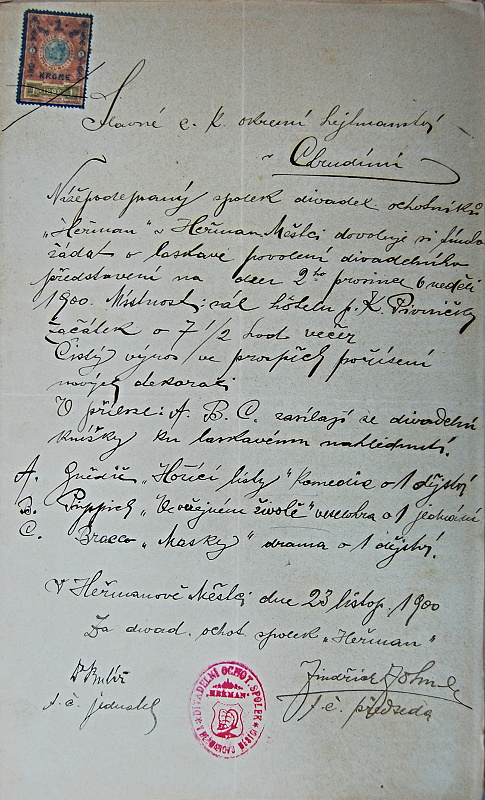 KRONE
Slavné c. k. okresní hejtmanství
v Chrudimi
Nížepodepsaný spolek divadel. ochotníků
„Heřman" v Heřman Městci dovoluje si
žádat o laskavé povolení divadelního
představení na den 2ho prosince v neděli
1900. Místnost: sál hôtelu p. K.
začátek o 7 1/2 hod. večer
Čistý výnos ve prospěch pořízení
nových dekorací
V příloze: A. B. C. zasílají se divadelní
knížky ku laskavému nahlédnutí.
A. Gnědič „Hořící listy" komedie o 1 dějství
B. „Ve veřejném životě" veselohra o 1 jednání
C. Bracco „Masky" drama o 1 dějství.
V Heřmanově Městci dne 23 listop. 1900
Za divad. ochot. spolek „Heřman"
Jindřich
t. č. jednatel
t. č. předseda
DIVADELNÍ OCHOT. SPOLEK
HEŘMAN